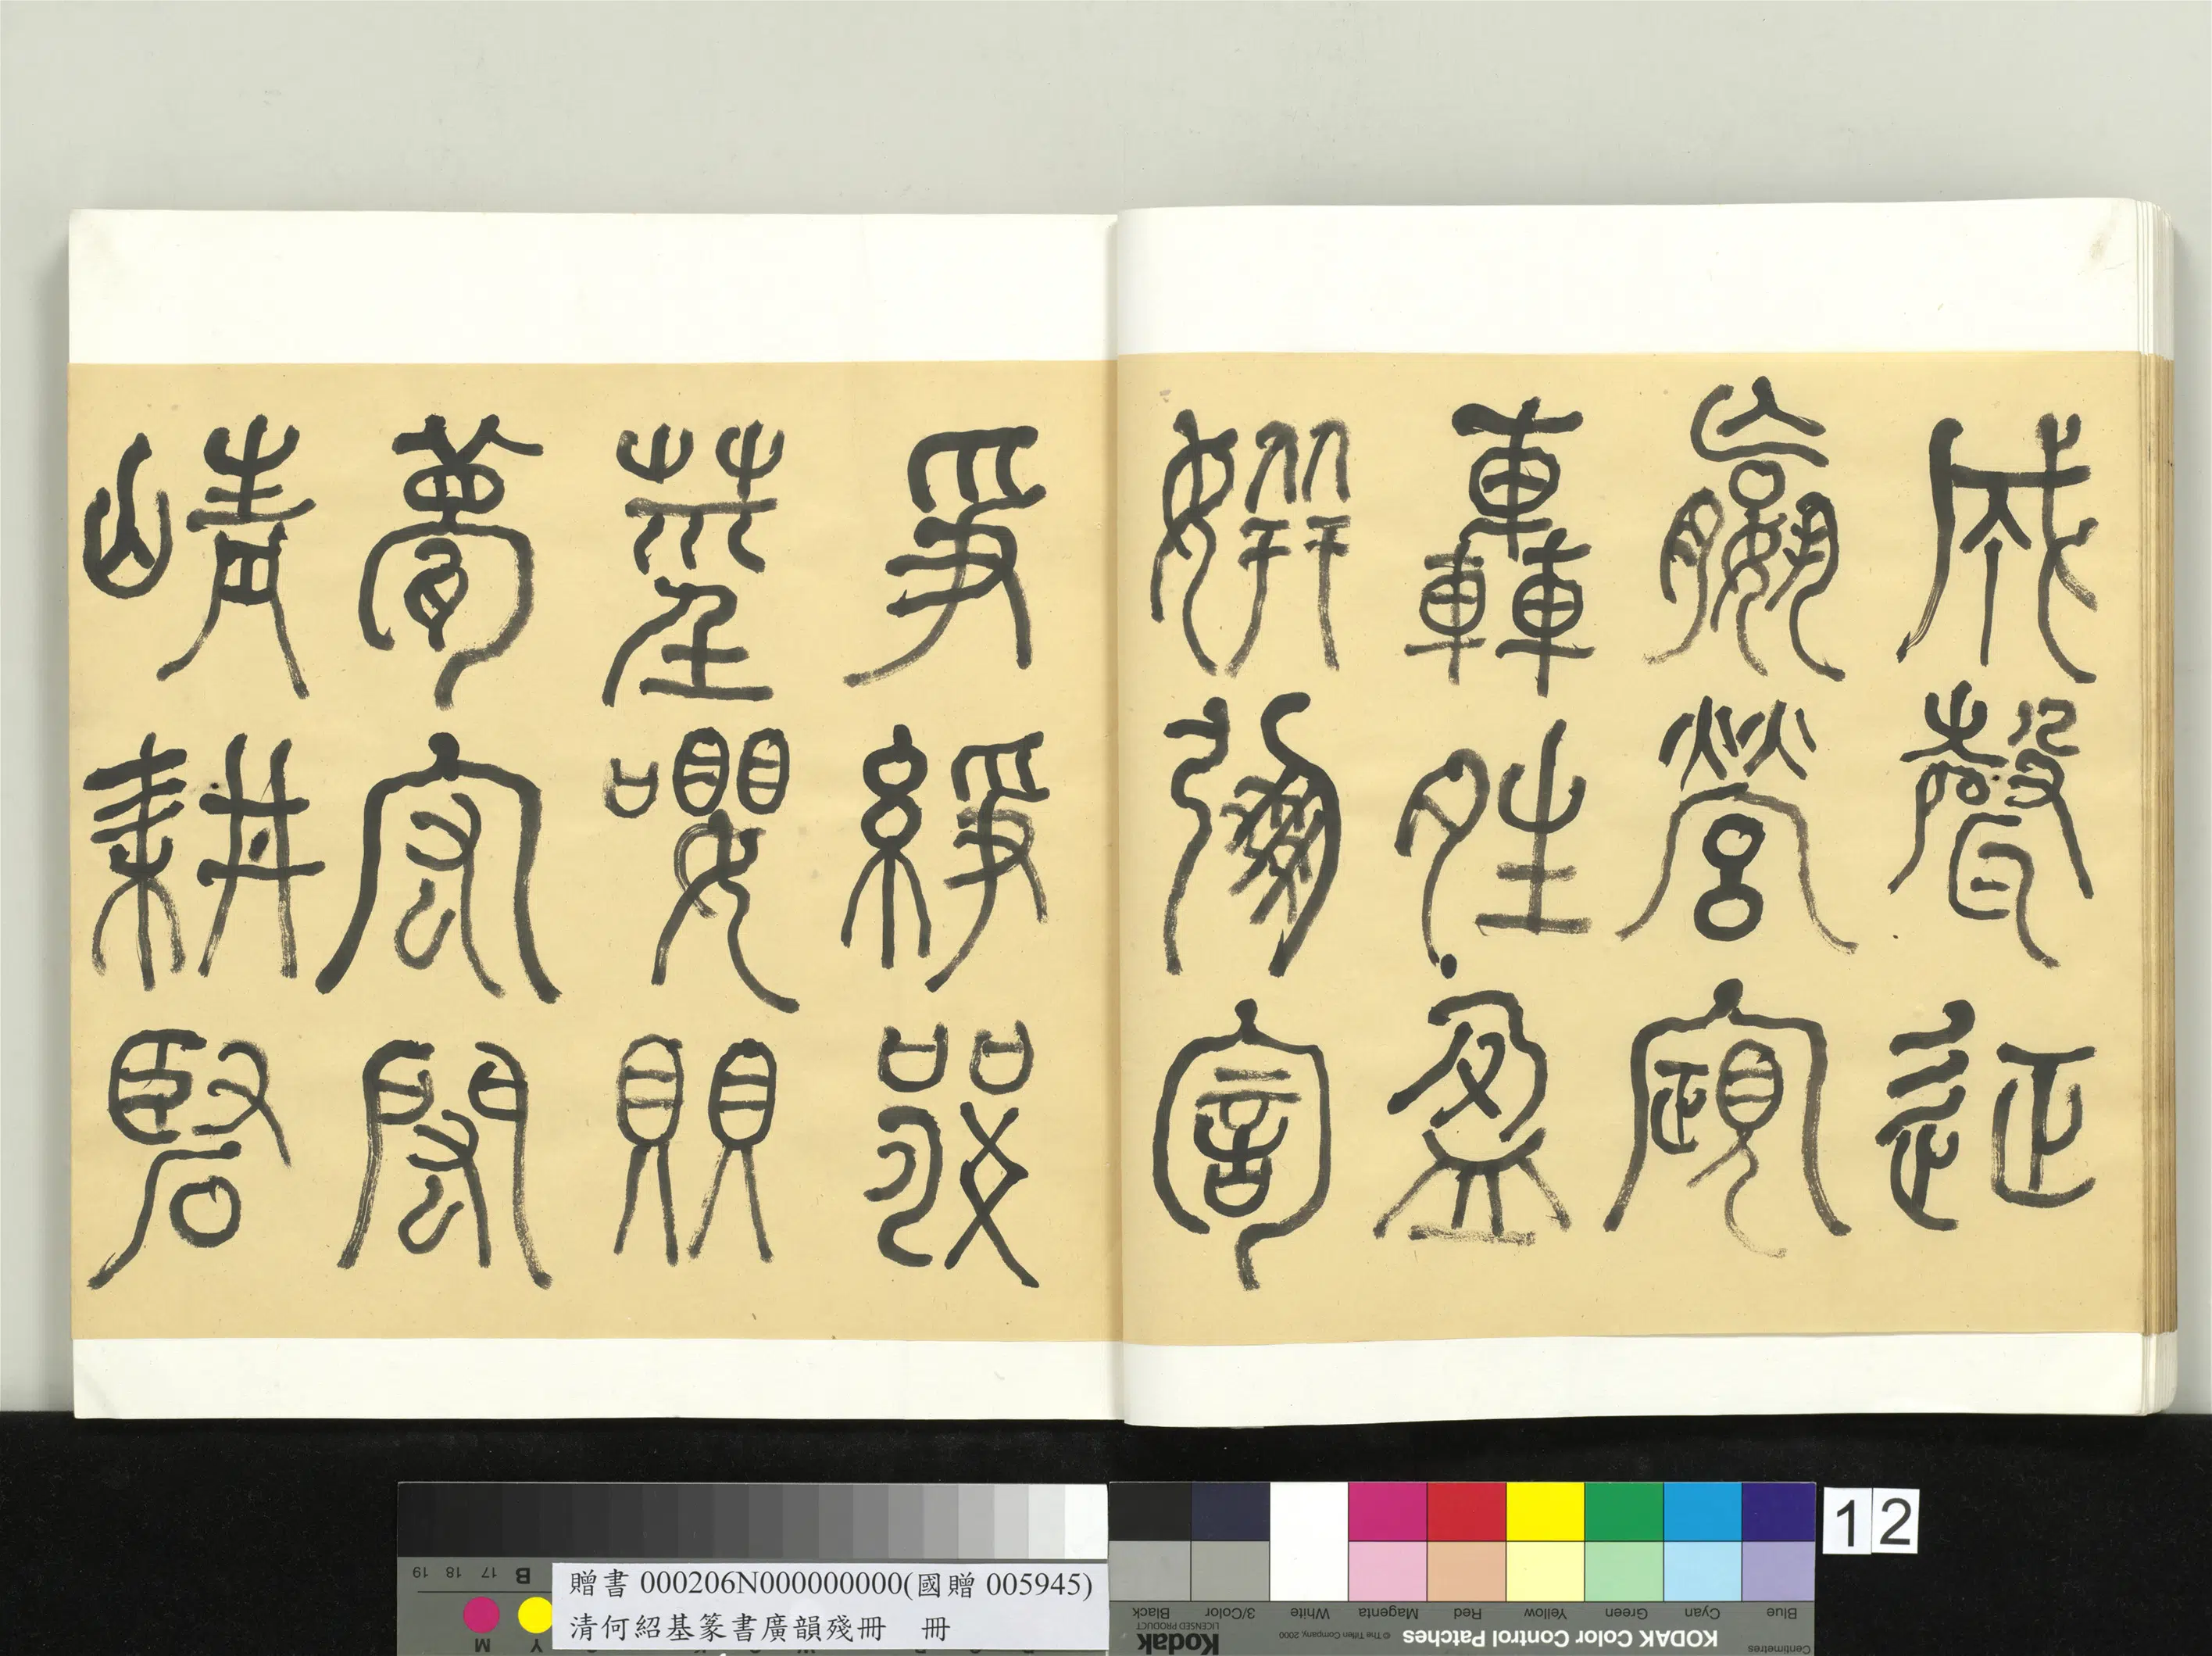 成聲
嬴營
轟夝盈
姘
爭
莖嚶賏
甍宏閎
崝耕硻
贈書 000206N000000000(國贈 005945)
清何紹基篆書廣韻殘冊 冊
12
KODAK Color Control Patches
Kodak
LICENSED PRODUCT
© The Tiffen Company, 2000
Centimetres
Blue Cyan Green Yellow Red Magenta White 3/Color Black
B 17 18 19
M Y